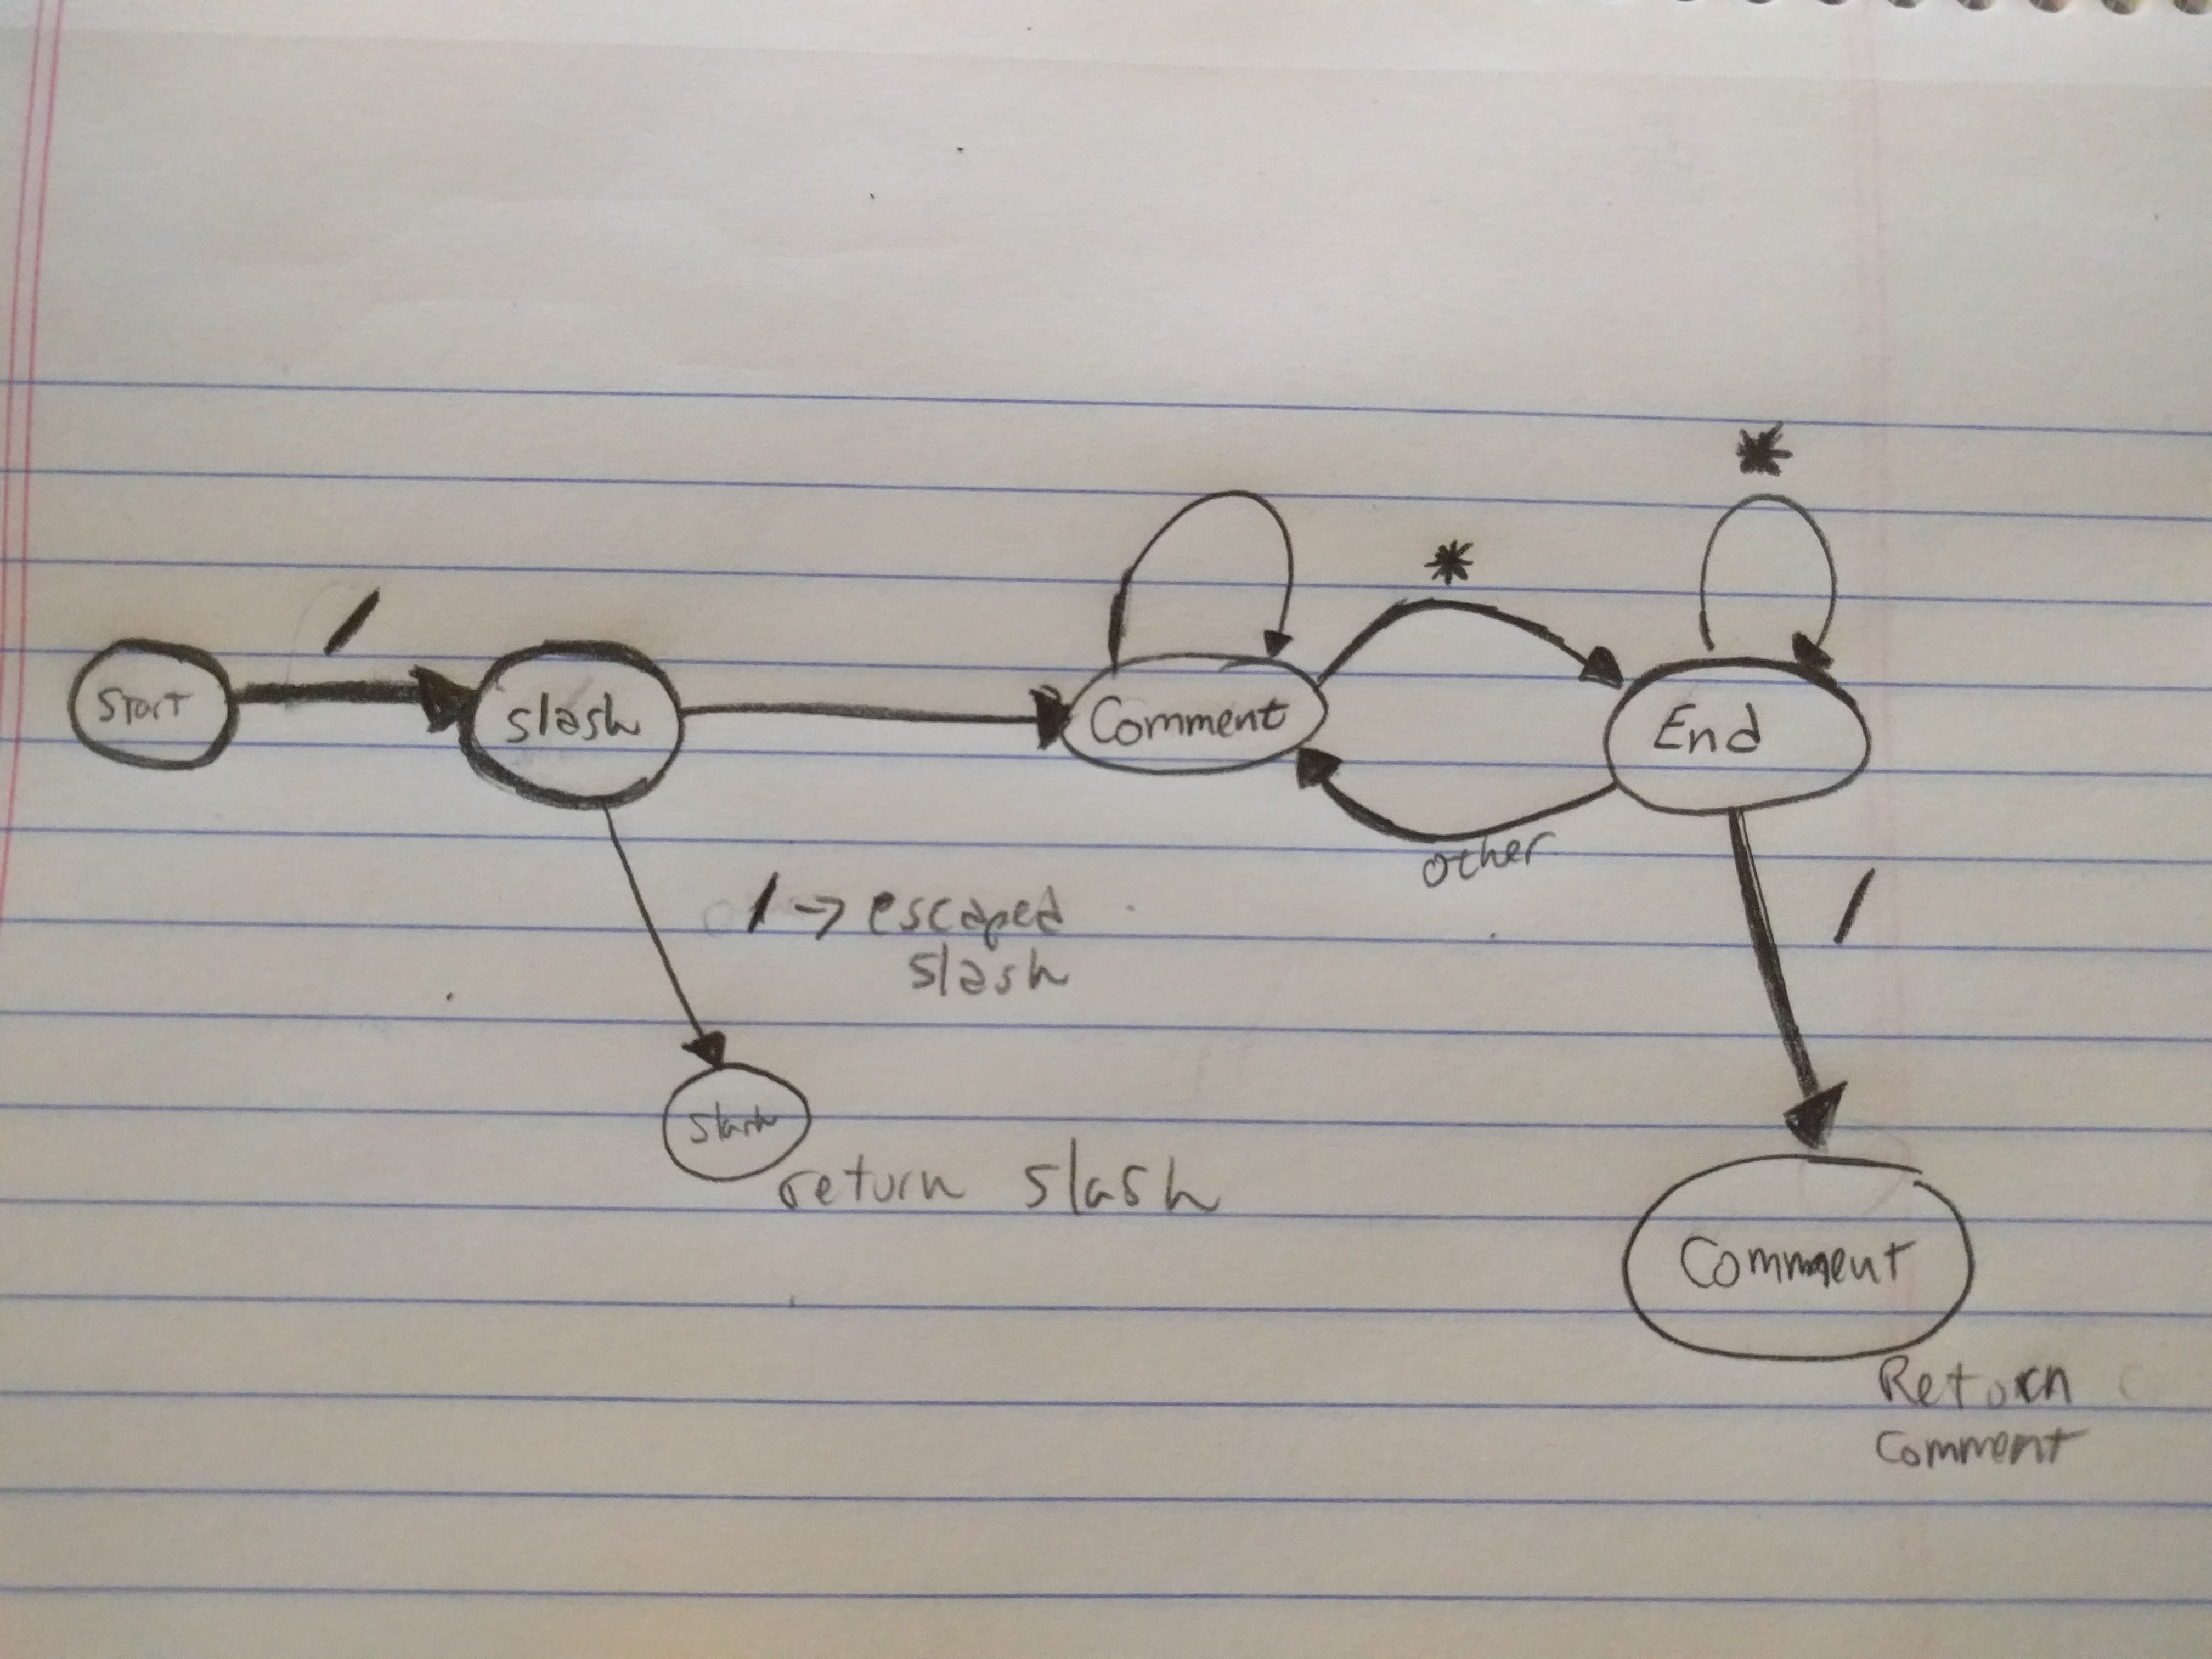 *
*
/
Start
slash
Comment
End
other
/ → escaped
slash
/
slash
return slash
Comment
Return
Comment